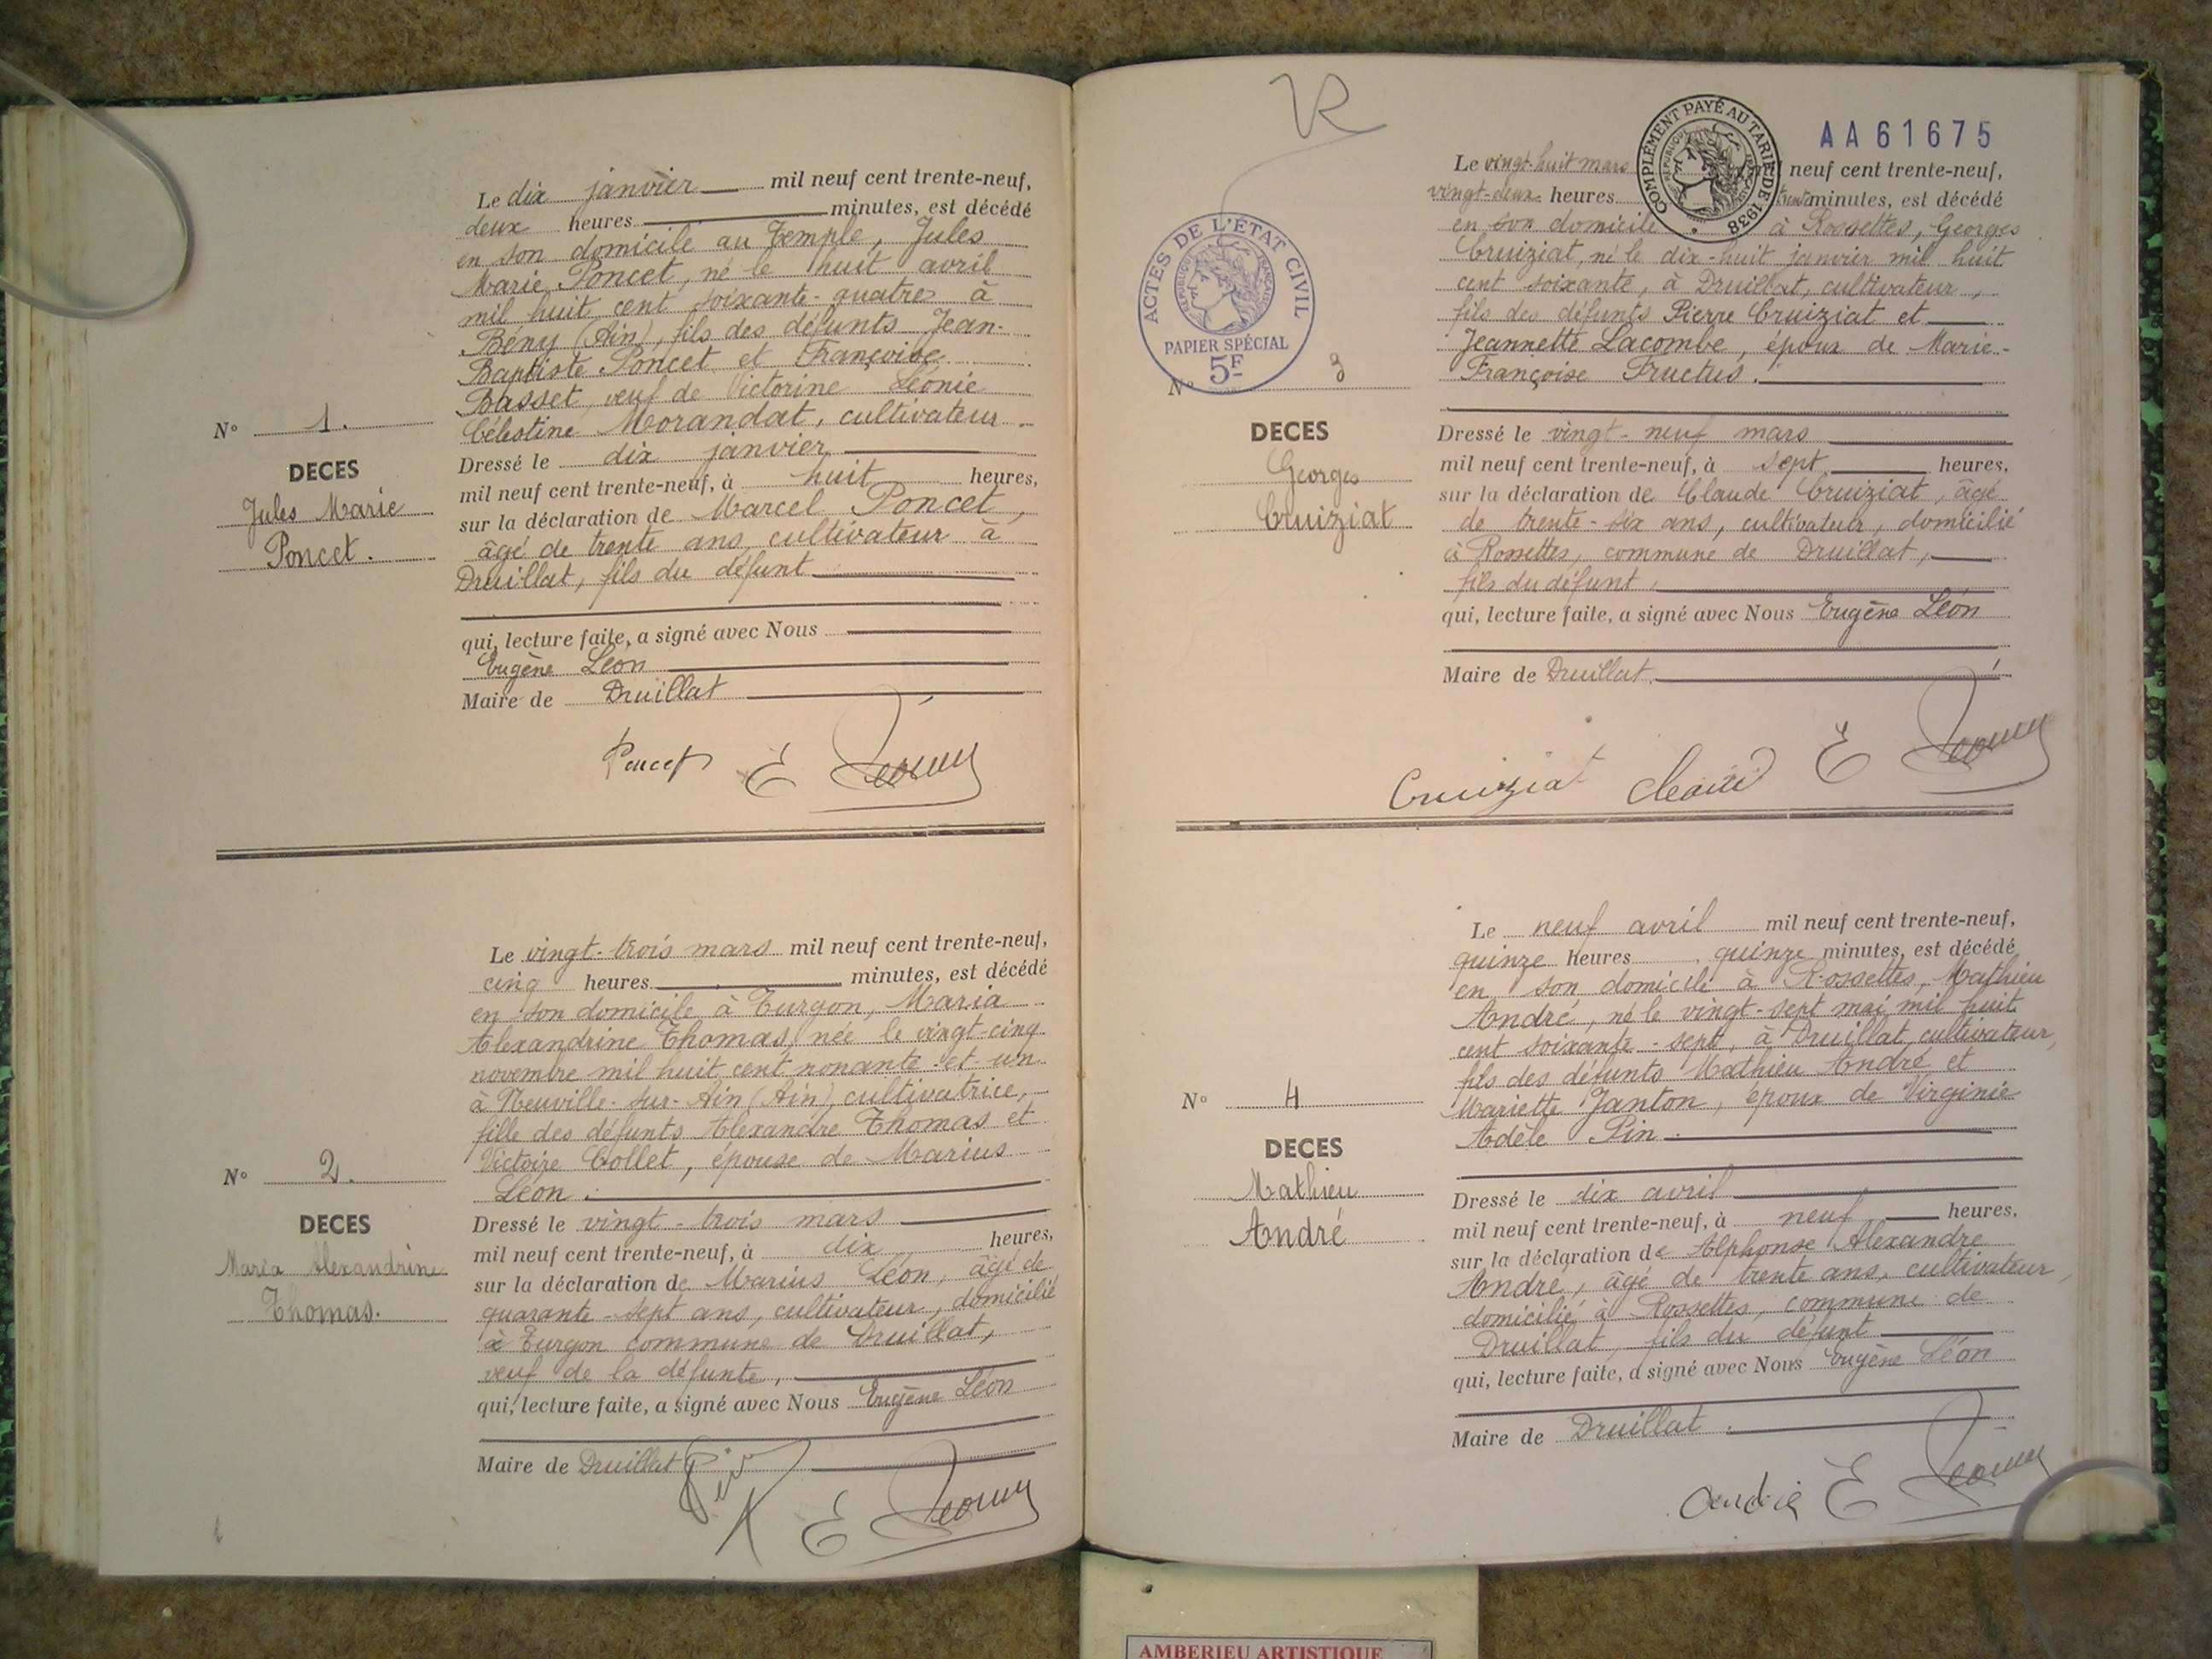 Le dix janvier mil neuf cent trente-neuf,
deux heures minutes, est décédé
en son domicile au Temple, Jules
Marie Poncet, né le huit avril
mil huit cent soixante-quatre à
Bény (Ain), fils des défunts Jean-
Baptiste Poncet et Françoise
Basset, veuf de Victorine Léonie
Célestine Morandat, cultivateur
N° 1.
DECES
Jules Marie
Poncet.
Dressé le dix janvier
mil neuf cent trente-neuf, à huit heures,
sur la déclaration de Marcel Poncet,
âgé de trente ans, cultivateur à
Druillat, fils du défunt
qui, lecture faite, a signé avec Nous
Eugène Léon
Maire de Druillat
Poncet E Léon
Le vingt-trois mars mil neuf cent trente-neuf,
cinq heures minutes, est décédé
en son domicile à Turgon, Maria
Alexandrine Thomas, née le vingt-cinq
novembre mil huit cent nonante-et-un
à Neuville-sur-Ain (Ain), cultivatrice,
fille des défunts Alexandre Thomas et
Victoire Collet, épouse de Marius
Léon.
N° 2.
DECES
Maria Alexandrine
Thomas.
Dressé le vingt-trois mars
mil neuf cent trente-neuf, à dix heures,
sur la déclaration de Marius Léon, âgé de
quarante-sept ans, cultivateur, domicilié
à Turgon commune de Druillat,
veuf de la défunte,
qui, lecture faite, a signé avec Nous Eugène Léon
Maire de Druillat
E Léon
AA61675
COMPLÉMENT PAYÉ AU TARIF DE 1938
ACTES DE L'ÉTAT CIVIL
RÉPUBLIQUE FRANÇAISE
PAPIER SPÉCIAL
5F
Le vingt-huit mars neuf cent trente-neuf,
vingt-deux heures trente minutes, est décédé
en son domicile à Rossettes, Georges
Cruiziat, né le dix-huit janvier mil huit
cent soixante, à Druillat, cultivateur,
fils des défunts Pierre Cruiziat et
Jeannette Lacombe, époux de Marie-
Françoise Fructus.
N° 3
DECES
Georges
Cruiziat
Dressé le vingt-neuf mars
mil neuf cent trente-neuf, à sept heures,
sur la déclaration de Claude Cruiziat, âgé
de trente-six ans, cultivateur, domicilié
à Rossettes, commune de Druillat,
fils du défunt,
qui, lecture faite, a signé avec Nous Eugène Léon
Maire de Druillat.
Cruiziat Claude E Léon
Le neuf avril mil neuf cent trente-neuf,
quinze heures quinze minutes, est décédé
en son domicile à Rossettes, Mathieu
André, né le vingt-sept mai mil huit
cent soixante-sept, à Druillat, cultivateur,
fils des défunts Mathieu André et
Mariette Janton, époux de Virginie
Adèle Pin.
N° 4
DECES
Mathieu
André
Dressé le dix avril
mil neuf cent trente-neuf, à neuf heures,
sur la déclaration de Alphonse Alexandre
André, âgé de trente ans, cultivateur,
domicilié à Rossettes, commune de
Druillat, fils du défunt
qui, lecture faite, a signé avec Nous Eugène Léon
Maire de Druillat.
André E Léon
AMBERIEU ARTISTIQUE